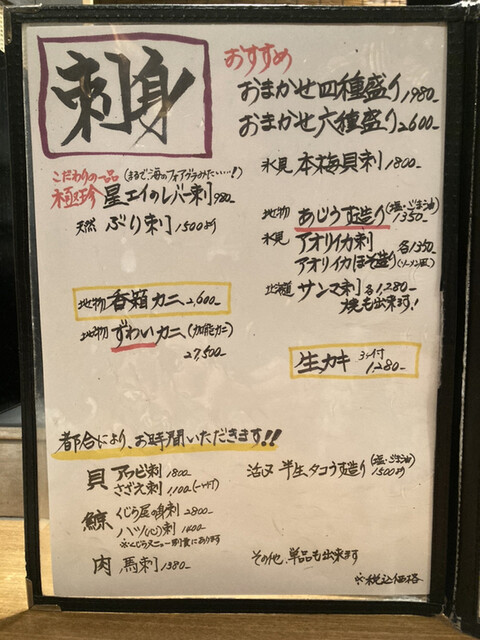 刺身
おすすめ
おまかせ四種盛り 1980-
おまかせ六種盛り 2,600-
氷見 本梅貝刺 1800-
こだわりの一品 (まるで海のフォアグラみたい…!)
極珍 星エイのレバー刺 980-
天然 ぶり刺 1500より
地物 あじうす造り (塩・ごま油) 1350-
氷見 アオリイカ刺
アオリイカほそ造り (ソーメン風) 各1350-
北海道 サンマ刺 各1,280-
焼も出来ます!
地物 香箱カニ 2,600-
地物 ずわいカニ (加能カニ)
27,500-
生カキ 3ヶ付 1,280-
都合により、お時間いただきます!!
貝 アワビ刺 1800-
さざえ刺 1,100- (一ヶ付)
鯨 くじら尾の身刺 2800-
ハツ(心)刺 1400-
※くじらメニュー別費にあります
肉 馬刺 1380-
活〆 半生タコうす造り (塩・ごま油) 1500より
その他、単品も出来ます
※税込価格